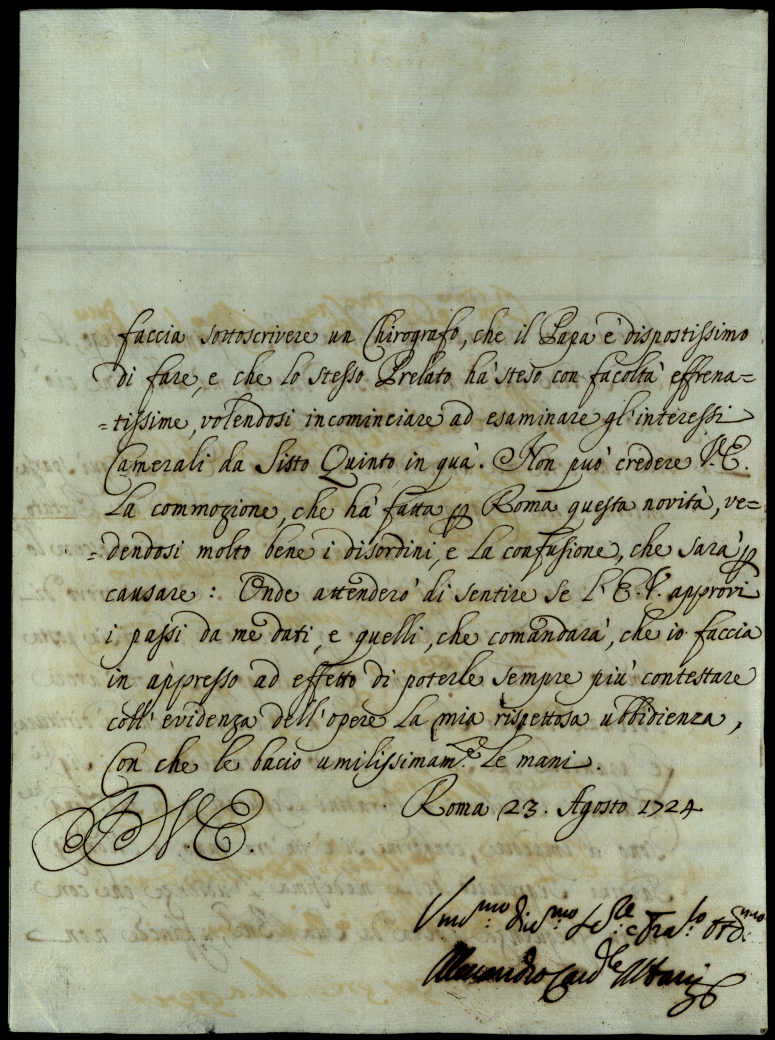 faccia sottoscrivere un Chirografo, che il Papa è dispostissimo
di fare, e che lo stesso Prelato hà steso con facoltà effrena=
=tissime, volendosi incominciare ad esaminare gl'interessi
Camerali da Sisto Quinto in quà. Non può credere V.E.
La commozione, che hà fatta p Roma questa novità, ve=
=dendosi molto bene i disordini, e la confusione, che sarà p
causare: Onde attenderò di sentire se l'E.V. approvi
i passi da me dati, e quelli, che comandarà, che io faccia
in appresso ad effetto di poterle sempre più contestare
coll'evidenza dell'opere la mia rispettosa ubbidienza,
Con che le bacio umilissimam.te le mani.
Roma 23. Agosto 1724
V.E.
Um.mo Di.mo
Alessandro Card.le Albani